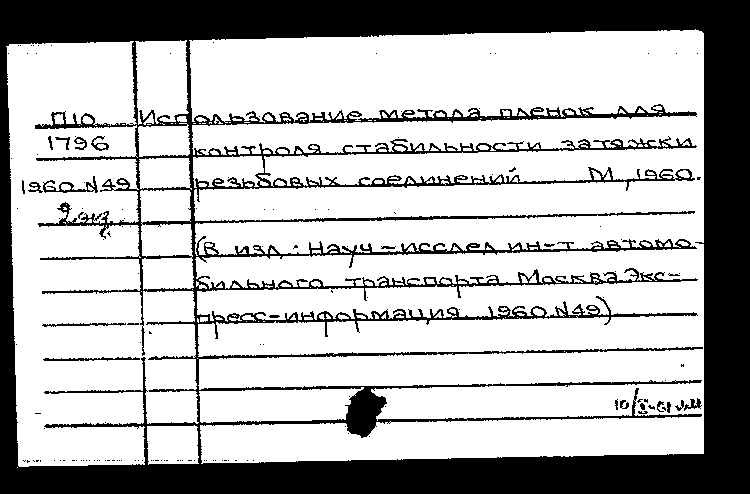 П10 Использование метода пленок для
1796 контроля стабильности затяжки
1960 N49 резьбовых соединений М, 1960.
2 экз.
(В изд.: Науч-исслед ин-т автомо-
бильного транспорта Москва Экс-
пресс-информация. 1960 N49)
10/X-61